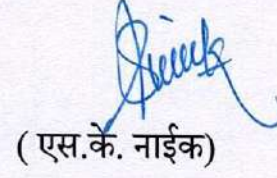 ( एस.के. नाईक)